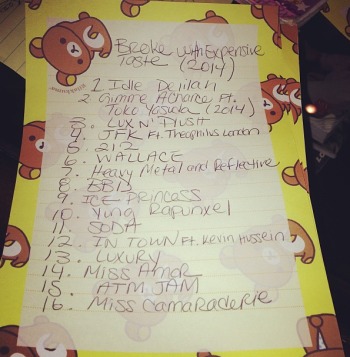 Broke with Expensive
Taste (2014)
1. Idle Delilah
2. Gimme A Chance Ft.
Yuko Yasuda (2014)
3. LUX N' PYUSH
4. JFK Ft. Theophilus London
5. 212
6. WALLACE
7. Heavy Metal and Reflective
8. BBD
9. ICE PRINCESS
10. Yung Rapunxel
11. SODA
12. IN TOWN Ft. Kevin Hussein
13. LUXURY
14. Miss Amor
15. ATM JAM
16. Miss Camaraderie